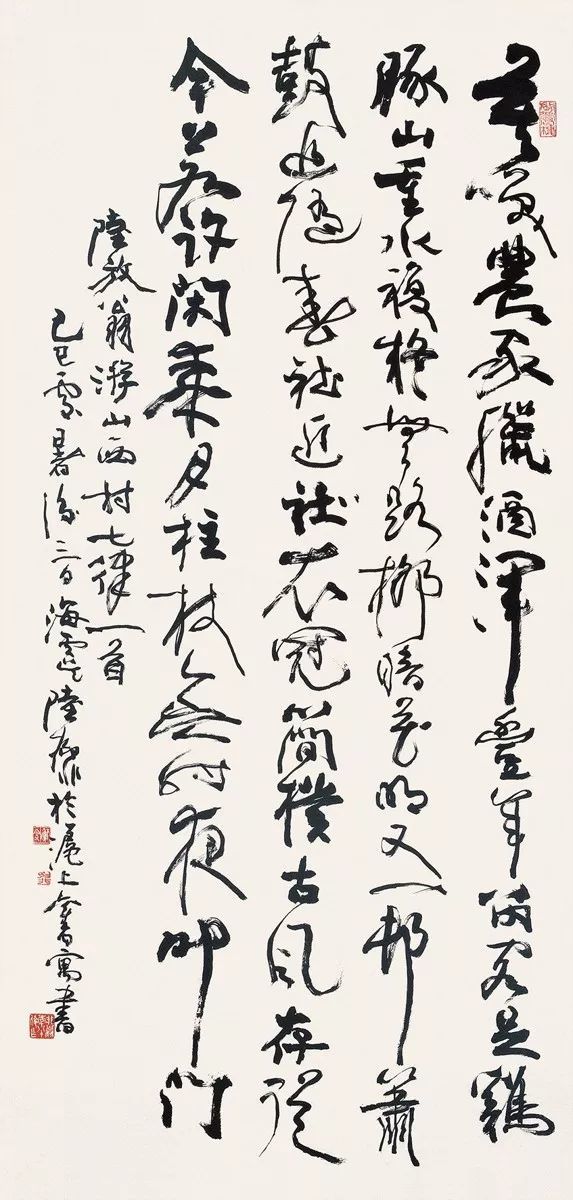 莫笑農家臘酒渾豐年留客足鷄
豚山重水複疑無路柳暗花明又一邨蕭
鼓追隨春社近社衣冠簡樸古風存從
今若許閑乘月柱杖無時夜叩門
陸放翁游山西村七律一首
己巳處暑後三日海虞陸抑非於滬上舊寓書